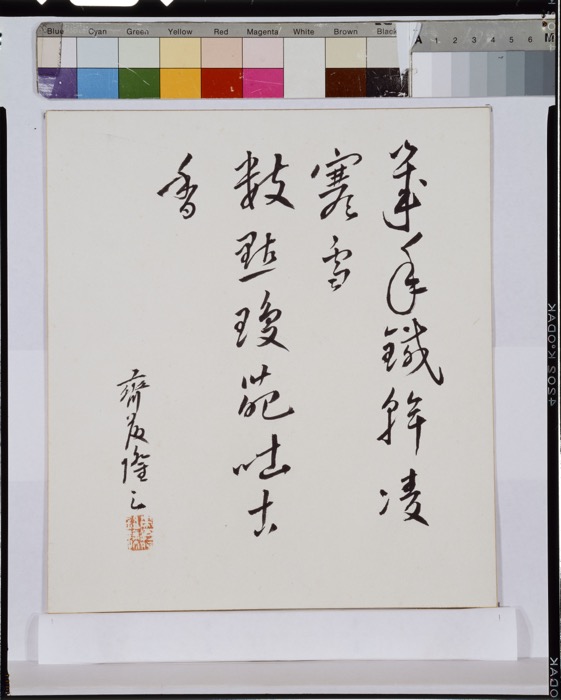 Blue Cyan Green Yellow Red Magenta White Brown Black
A 1 2 3 4 5 6 M
幾年鐵幹凌
寒雪
數點瓊葩吐古
香
齋藤隆三